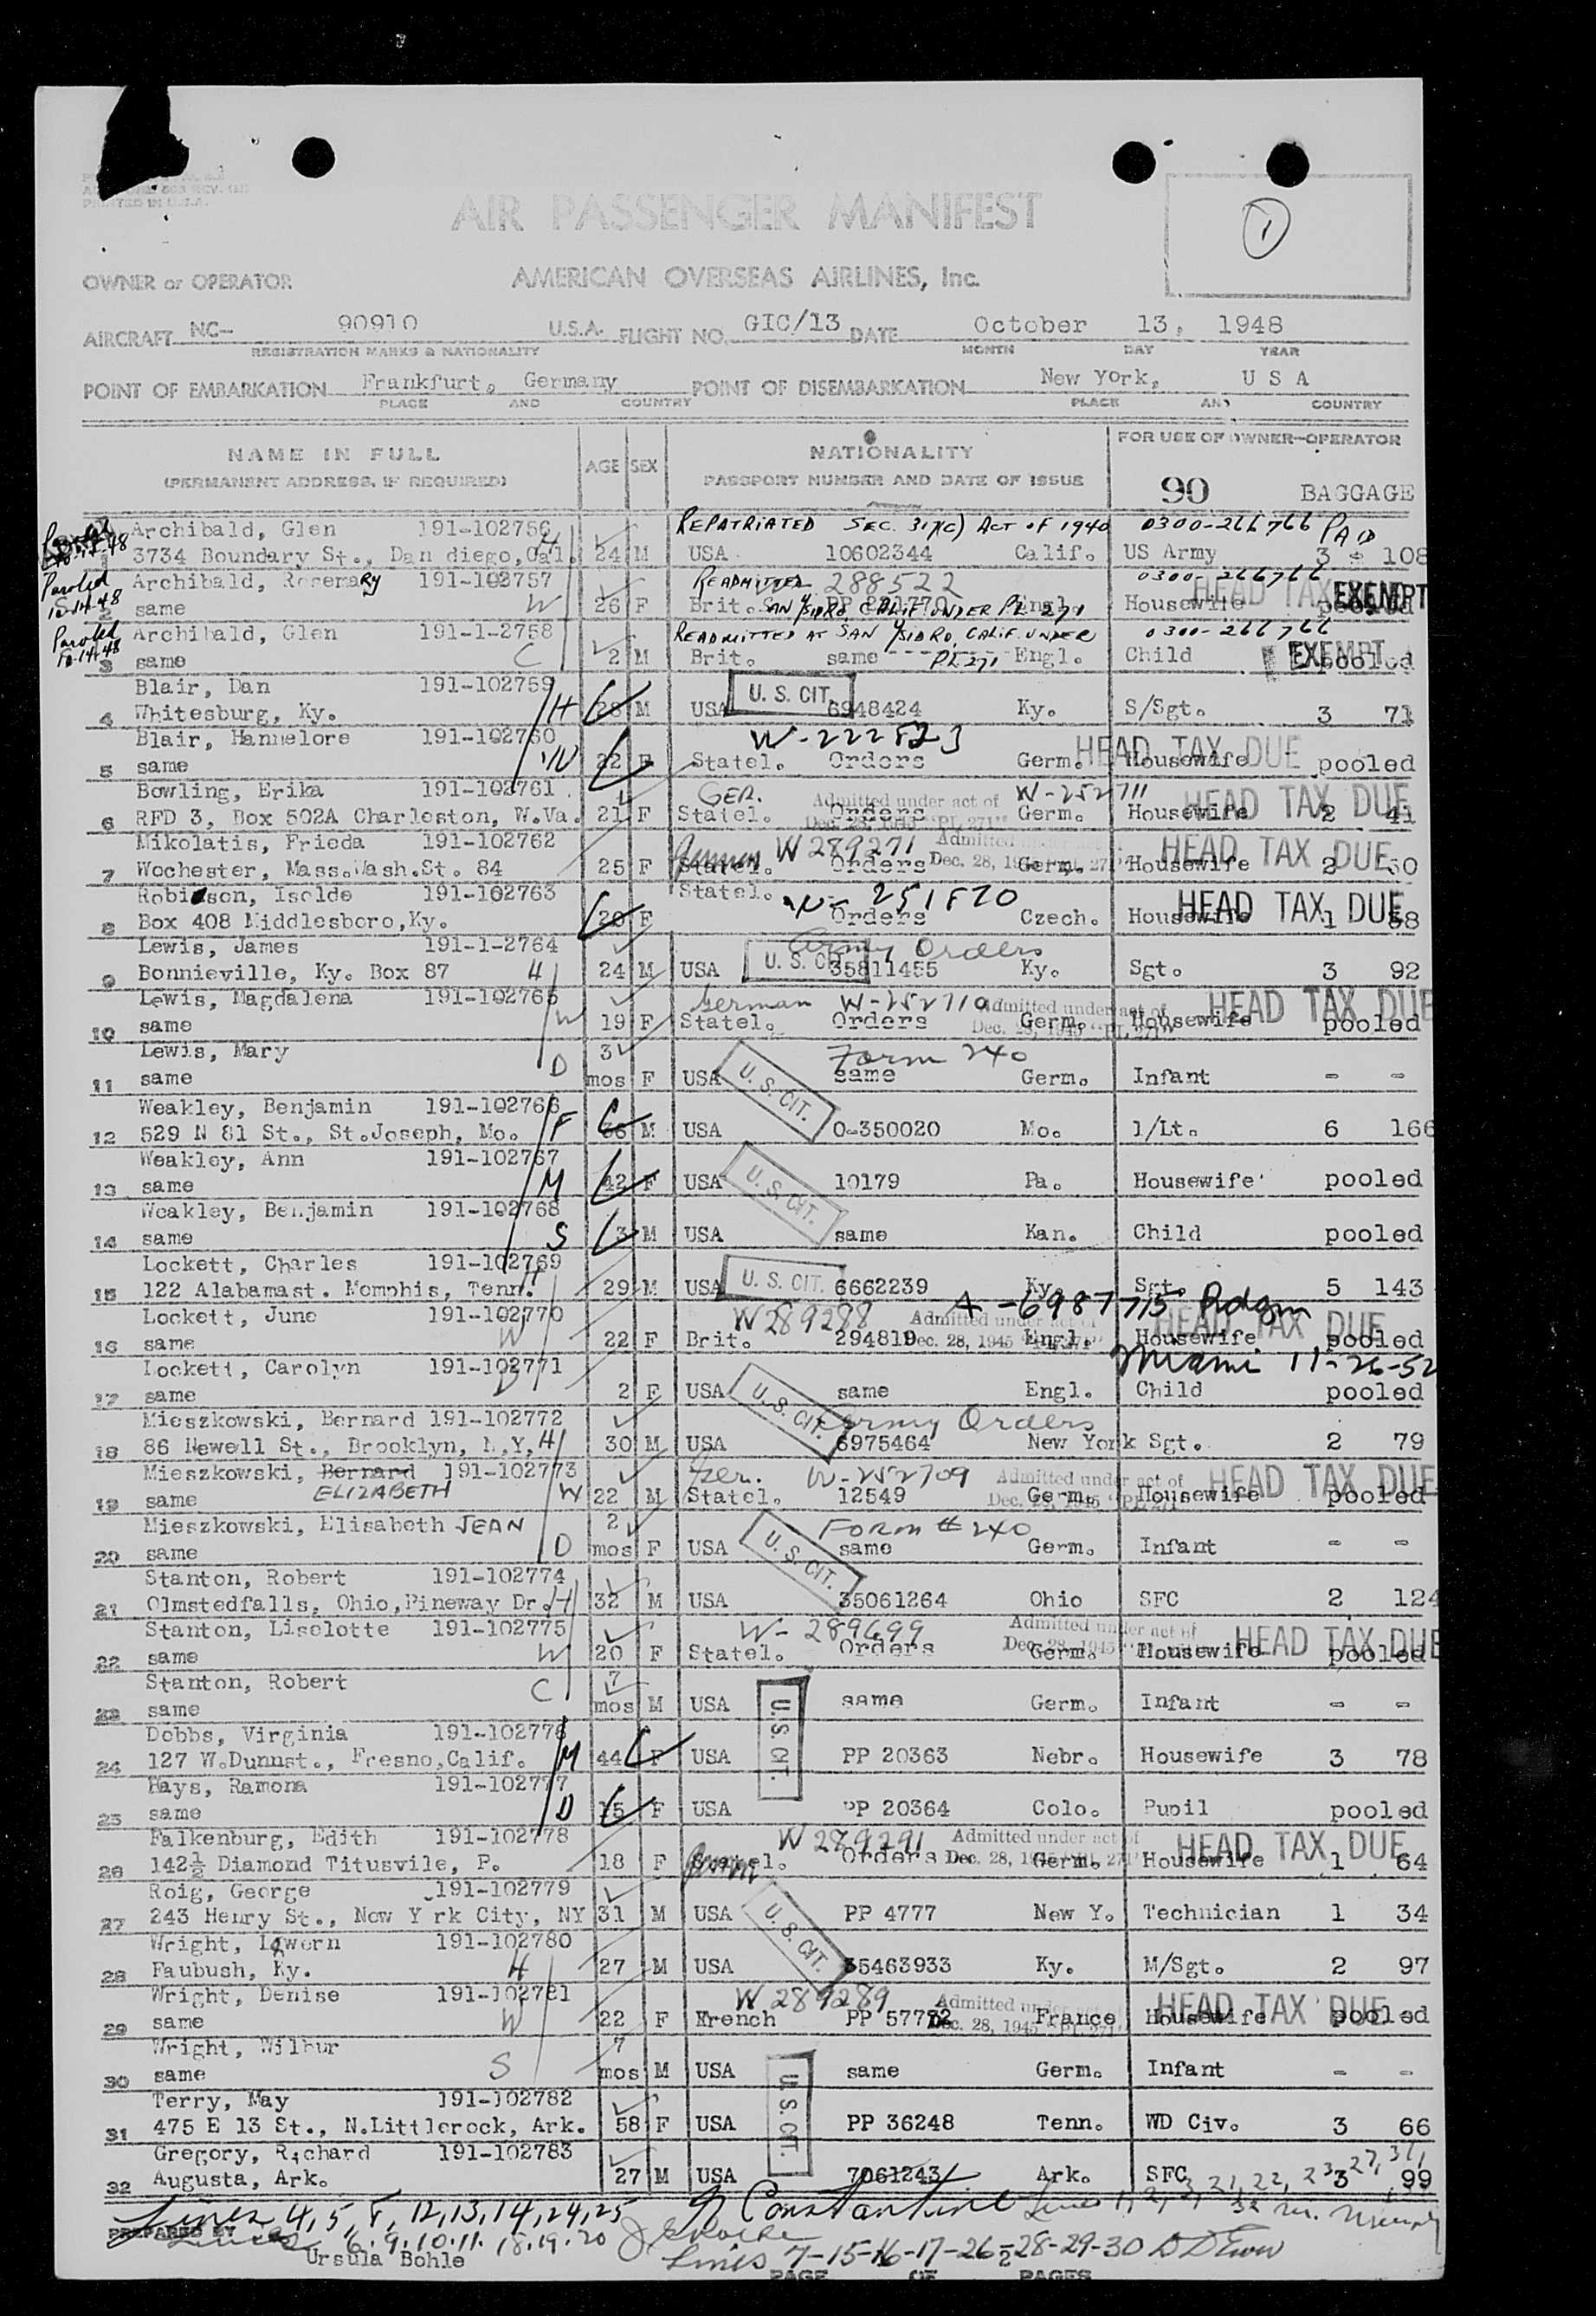 PRINTED IN U.S.A.
AIR PASSENGER MANIFEST
1
OWNER or OPERATOR AMERICAN OVERSEAS AIRLINES, Inc.
AIRCRAFT NC- 90910 U.S.A. FLIGHT NO. GIC/13 DATE October 13, 1948
REGISTRATION MARKS & NATIONALITY MONTH DAY YEAR
POINT OF EMBARKATION Frankfurt, Germany POINT OF DISEMBARKATION New York, U S A
PLACE AND COUNTRY PLACE AND COUNTRY
NAME IN FULL AGE SEX NATIONALITY FOR USE OF OWNER-OPERATOR
(PERMANENT ADDRESS, IF REQUIRED) PASSPORT NUMBER AND DATE OF ISSUE 90 BAGGAGE
Archibald, Glen 191-102756 REPATRIATED SEC. 317(C) ACT OF 1940 0300-266766 PAID
1 3734 Boundary St., Dan diego, Cal. H 24 M USA 10602344 Calif. US Army 3 108
Paroled Archibald, Rosemary 191-102757 READMITTED 288522 0300-266766 HEAD TAX EXEMPT
10-14-48 2 same W 26 F Brit. SAN YSIDRO, CALIF. UNDER PL 271 Engl. Housewife pooled
Paroled Archibald, Glen 191-1-2758 READMITTED AT SAN YSIDRO, CALIF. UNDER 0300-266766
10-14-48 3 same C 2 M Brit. same PL 271 Engl. Child EXEMPT pooled
Blair, Dan 191-102759 U. S. CIT.
4 Whitesburg, Ky. H 28 M USA 6948424 Ky. S/Sgt. 3 71
Blair, Hannelore 191-102760 W-222823 HEAD TAX DUE
5 same W 22 F Statel. Orders Germ. Housewife pooled
Bowling, Erika 191-102761 GER. Admitted under act of W-252711 HEAD TAX DUE
6 RFD 3, Box 502A Charleston, W.Va. 21 F Statel. Orders Dec. 28, 1945 "PL 271" Germ. Housewife 2 41
Mikolatis, Frieda 191-102762 German W 289271 Admitted HEAD TAX DUE
7 Wochester, Mass. Wash. St. 84 25 F Statel. Orders Dec. 28, 1945 Germ. Housewife 2 60
Robinson, Isolde 191-102763 Statel. W- 251870 HEAD TAX DUE
8 Box 408 Middlesboro, Ky. 20 F Orders Czech. Housewife 1 58
Lewis, James 191-1-2764 U. S. CIT. Army Orders
9 Bonnieville, Ky. Box 87 H 24 M USA 35811455 Ky. Sgt. 3 92
Lewis, Magdalena 191-102765 German W-252710 Admitted under act of HEAD TAX DUE
10 same W 19 F Statel. Orders Dec. 28, 1945 "PL 271" Germ. Housewife pooled
Lewis, Mary 3 Form 240
11 same D mos F USA U. S. CIT. same Germ. Infant - -
Weakley, Benjamin 191-102766
12 529 N 81 St., St.Joseph, Mo. F 36 M USA O-350020 Mo. 1/Lt. 6 166
Weakley, Ann 191-102767
13 same M 42 F USA U. S. CIT. 10179 Pa. Housewife pooled
Weakley, Benjamin 191-102768
14 same S 3 M USA same Kan. Child pooled
Lockett, Charles 191-102769
15 122 Alabamast. Memphis, Tenn. H 29 M USA U. S. CIT. 6662239 Ky. Sgt. 5 143
Lockett, June 191-102770 W 289288 Admitted under act of A-6987715 Rdgm HEAD TAX DUE
16 same W 22 F Brit. 294819 Dec. 28, 1945 Engl. Housewife pooled
Lockett, Carolyn 191-102771 Miami 11-26-52
17 same D 2 F USA U. S. CIT. same Engl. Child pooled
Mieszkowski, Bernard 191-102772 Army Orders
18 86 Newell St., Brooklyn, N.Y. H 30 M USA 6975464 New York Sgt. 2 79
Mieszkowski, Bernard 191-102773 Ger. W-252709 Admitted under act of HEAD TAX DUE
19 same ELIZABETH W 22 M Statel. 12549 Germ. Housewife pooled
Mieszkowski, Elisabeth JEAN 2 FORM # 240
20 same D mos F USA U. S. CIT. same Germ. Infant - -
Stanton, Robert 191-102774
21 Olmstedfalls, Ohio, Pineway Dr. H 32 M USA 35061264 Ohio SFC 2 124
Stanton, Liselotte 191-102775 W- 289699 Admitted under act of HEAD TAX DUE
22 same W 20 F Statel. Orders Dec. 28, 1945 Germ. Housewife pooled
Stanton, Robert 7
23 same C mos M USA U. S. CIT. same Germ. Infant - -
Dobbs, Virginia 191-102776
24 127 W.Dunnst., Fresno, Calif. M 44 F USA PP 20363 Nebr. Housewife 3 78
Hays, Ramona 191-102777
25 same D 15 F USA PP 20364 Colo. Pupil pooled
Falkenburg, Edith 191-102778 W 289291 Admitted under act of HEAD TAX DUE
26 142½ Diamond Titusvile, P. 18 F German Statel. Orders Dec. 28, 1945 Germ. Housewife 1 64
Roig, George 191-102779
27 243 Henry St., New Y rk City, NY 31 M USA U. S. CIT. PP 4777 New Y. Technician 1 34
Wright, Lawern 191-102780
28 Faubush, Ky. H 27 M USA 35463933 Ky. M/Sgt. 2 97
Wright, Denise 191-102781 W 289289 Admitted under act of HEAD TAX DUE
29 same W 22 F French PP 57782 Dec. 28, 1945 "PL 271" France Housewife pooled
Wright, Wilbur 7
30 same S mos M USA same Germ. Infant - -
Terry, May 191-102782
31 475 E 13 St., N.Littlerock, Ark. 58 F USA U. S. CIT. PP 36248 Tenn. WD Civ. 3 66
Gregory, Richard 191-102783
32 Augusta, Ark. 27 M USA 7061243 Ark. SFC 3 99
Lines 4, 5, 8, 12, 13, 14, 24, 25 Constantine Lines 1, 2, 3, 21, 22, 23, 27, 31, 32
PREPARED BY Lines 6.9.10.11.18.19.20
Ursula Bohle Lines 7-15-16-17-26-28-29-30
PAGE OF 2 PAGES